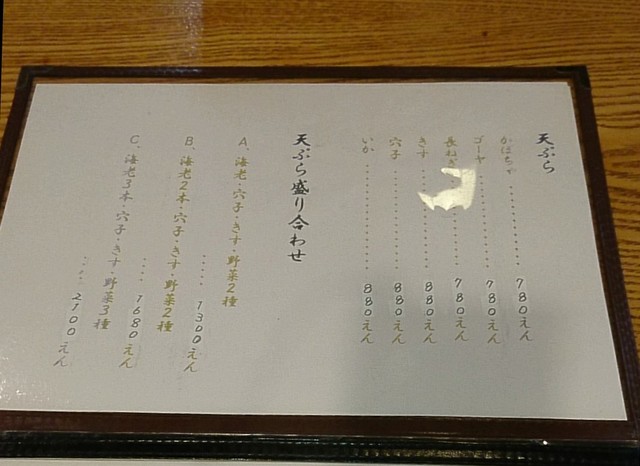 天ぷら
かぼちゃ……………780えん
ゴーヤ……………780えん
長ねぎ……………780えん
きす……………880えん
穴子……………880えん
いか……………880えん
天ぷら盛り合わせ
A、海老・穴子・きす・野菜2種
……1300えん
B、海老2本・穴子・きす・野菜2種
……1680えん
C、海老3本・穴子・きす・野菜3種
……2100えん